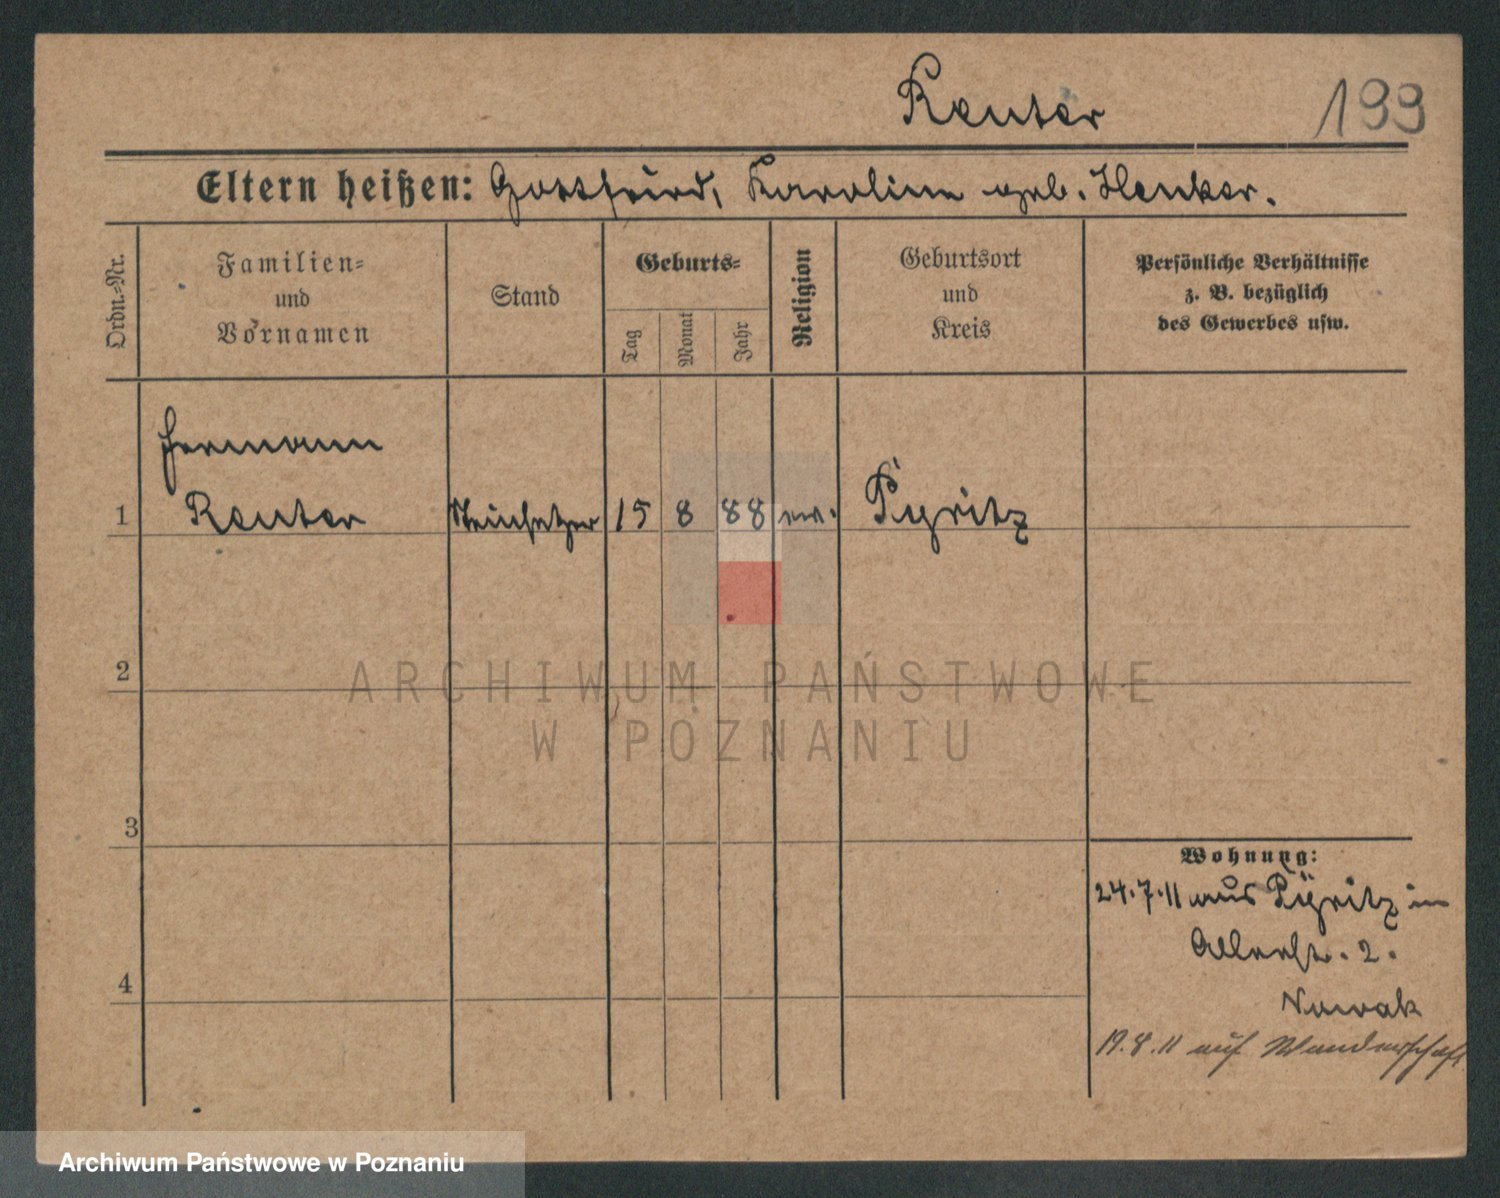 Reuter
199
Eltern heißen: Gottfried, Karoline geb. Henker.
Ordn.-Nr.
Familien-
und
Vornamen
Stand
Geburts-
Tag
Monat
Jahr
Religion
Geburtsort
und
Kreis
Persönliche Verhältnisse
z. B. bezüglich
des Gewerbes usw.
Hermann
1 Reuter Steinsetzer 15 8 88 ev. Pyritz
2
3
4
Wohnung:
24.7.11 aus Pyritz in
2.
Nowak
19.8.11 auf Wanderschaft
ARCHIWUM PAŃSTWOWE
W POZNANIU
Archiwum Państwowe w Poznaniu